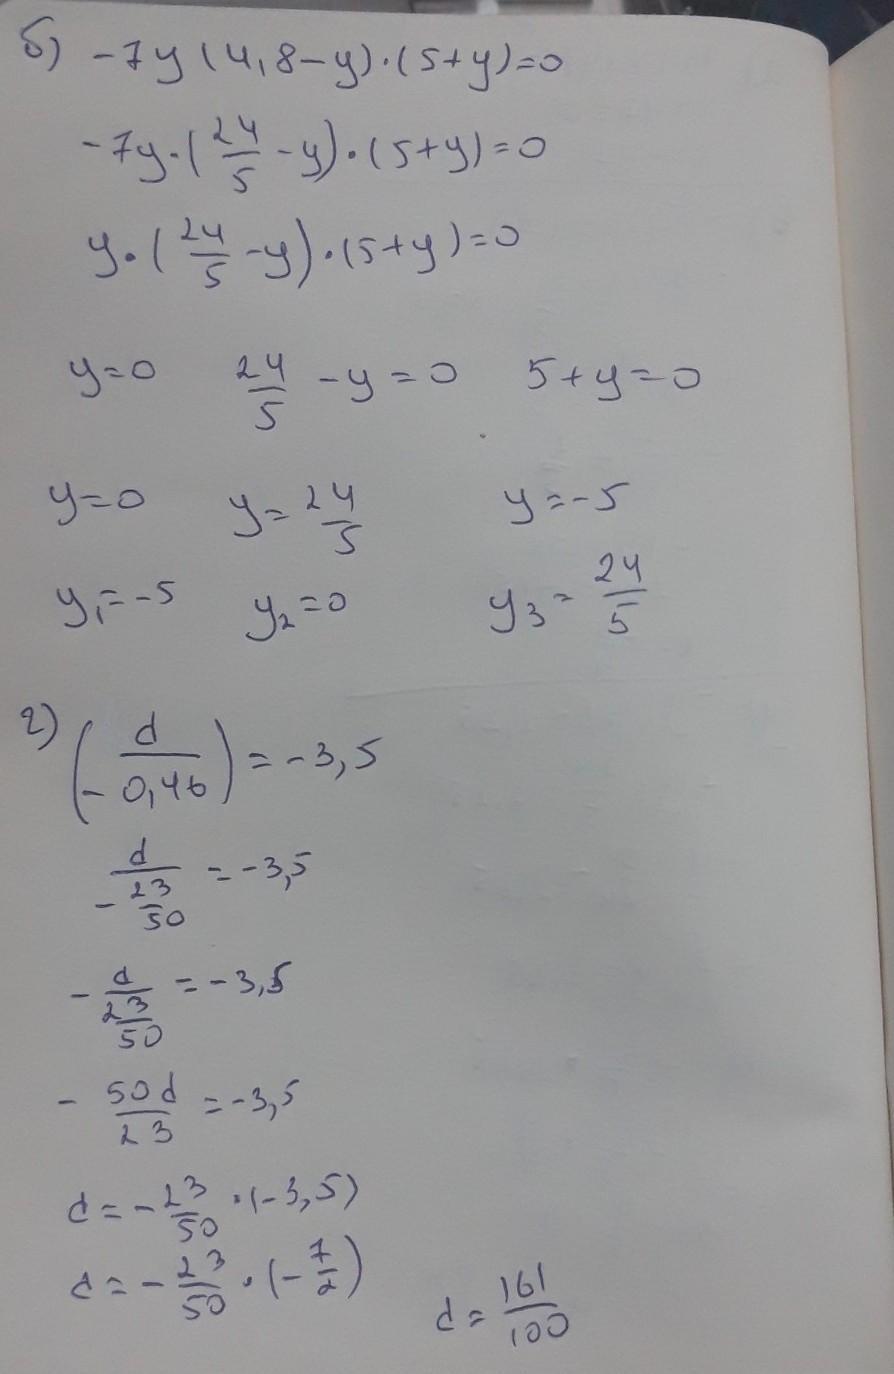 б) -7y(4,8-y)·(5+y)=0
-7y·(24/5-y)·(5+y)=0
y·(24/5-y)·(5+y)=0
y=0 24/5-y=0 5+y=0
y=0 y=24/5 y=-5
y₁=-5 y₂=0 y₃=24/5
г) (d/-0,46)=-3,5
d/-23/50=-3,5
-d/23/50=-3,5
-50d/23=-3,5
d=-23/50·(-3,5)
d=-23/50·(-7/2) d=161/100